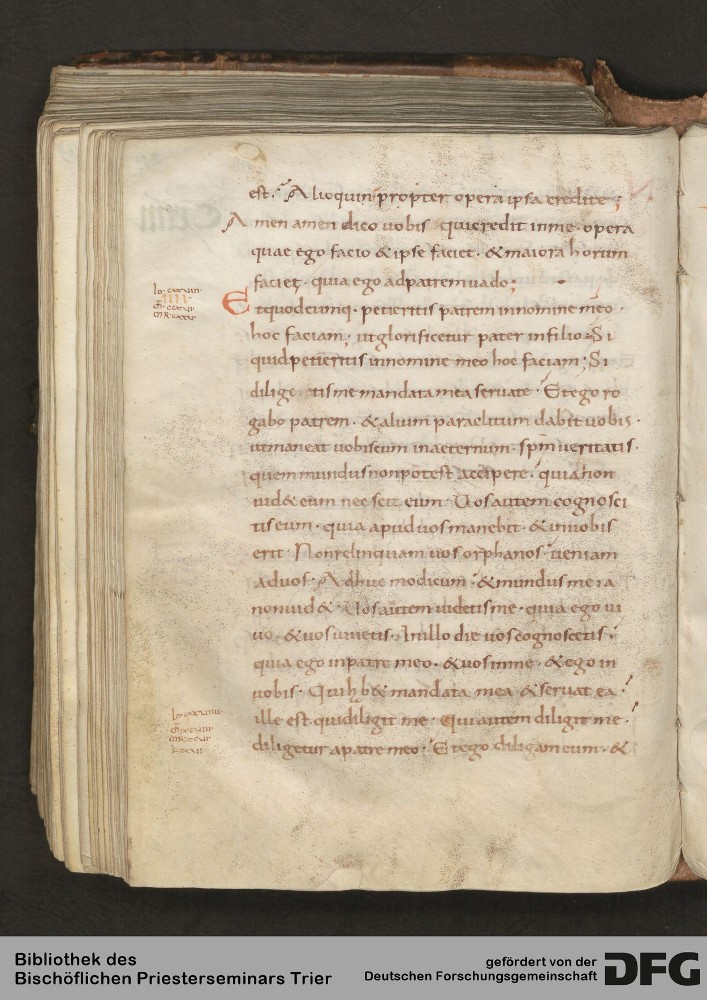 est. Alioquin propter opera ipsa credite;
Amen amen dico uobis qui credit in me. opera
quae ego facio & ipse faciet. & maiora horum
faciet. quia ego ad patrem uado;
Et quodcumq. petieritis patrem in nomine meo.
hoc faciam. ut glorificetur pater in filio. Si
quid petieritis in nomine meo hoc faciam; Si
diligetis me mandata mea seruate. Et ego ro
gabo patrem. & alium paraclitum dabit uobis.
ut maneat uobiscum in aeternum. spm ueritatis.
quem mundus non potest accipere. quia non
uid& eum nec scit eum. Uos autem cognosci
tis eum. quia apud uos manebit. & in uobis
erit. Non relinquam uos orphanos. ueniam
ad uos. Adhuc modicum. & mundus me ia
non uid&. Uos autem uidetis me. quia ego ui
uo. & uos uiuetis. In illo die uos cognoscetis.
quia ego in patre meo. & uos in me. & ego in
uobis. Qui hab& mandata mea & seruat ea.
ille est qui diligit me. Qui autem diligit me.
diligetur a patre meo. Et ego diligam eum. &
Bibliothek des
Bischöflichen Priesterseminars Trier
gefördert von der
Deutschen Forschungsgemeinschaft
DFG